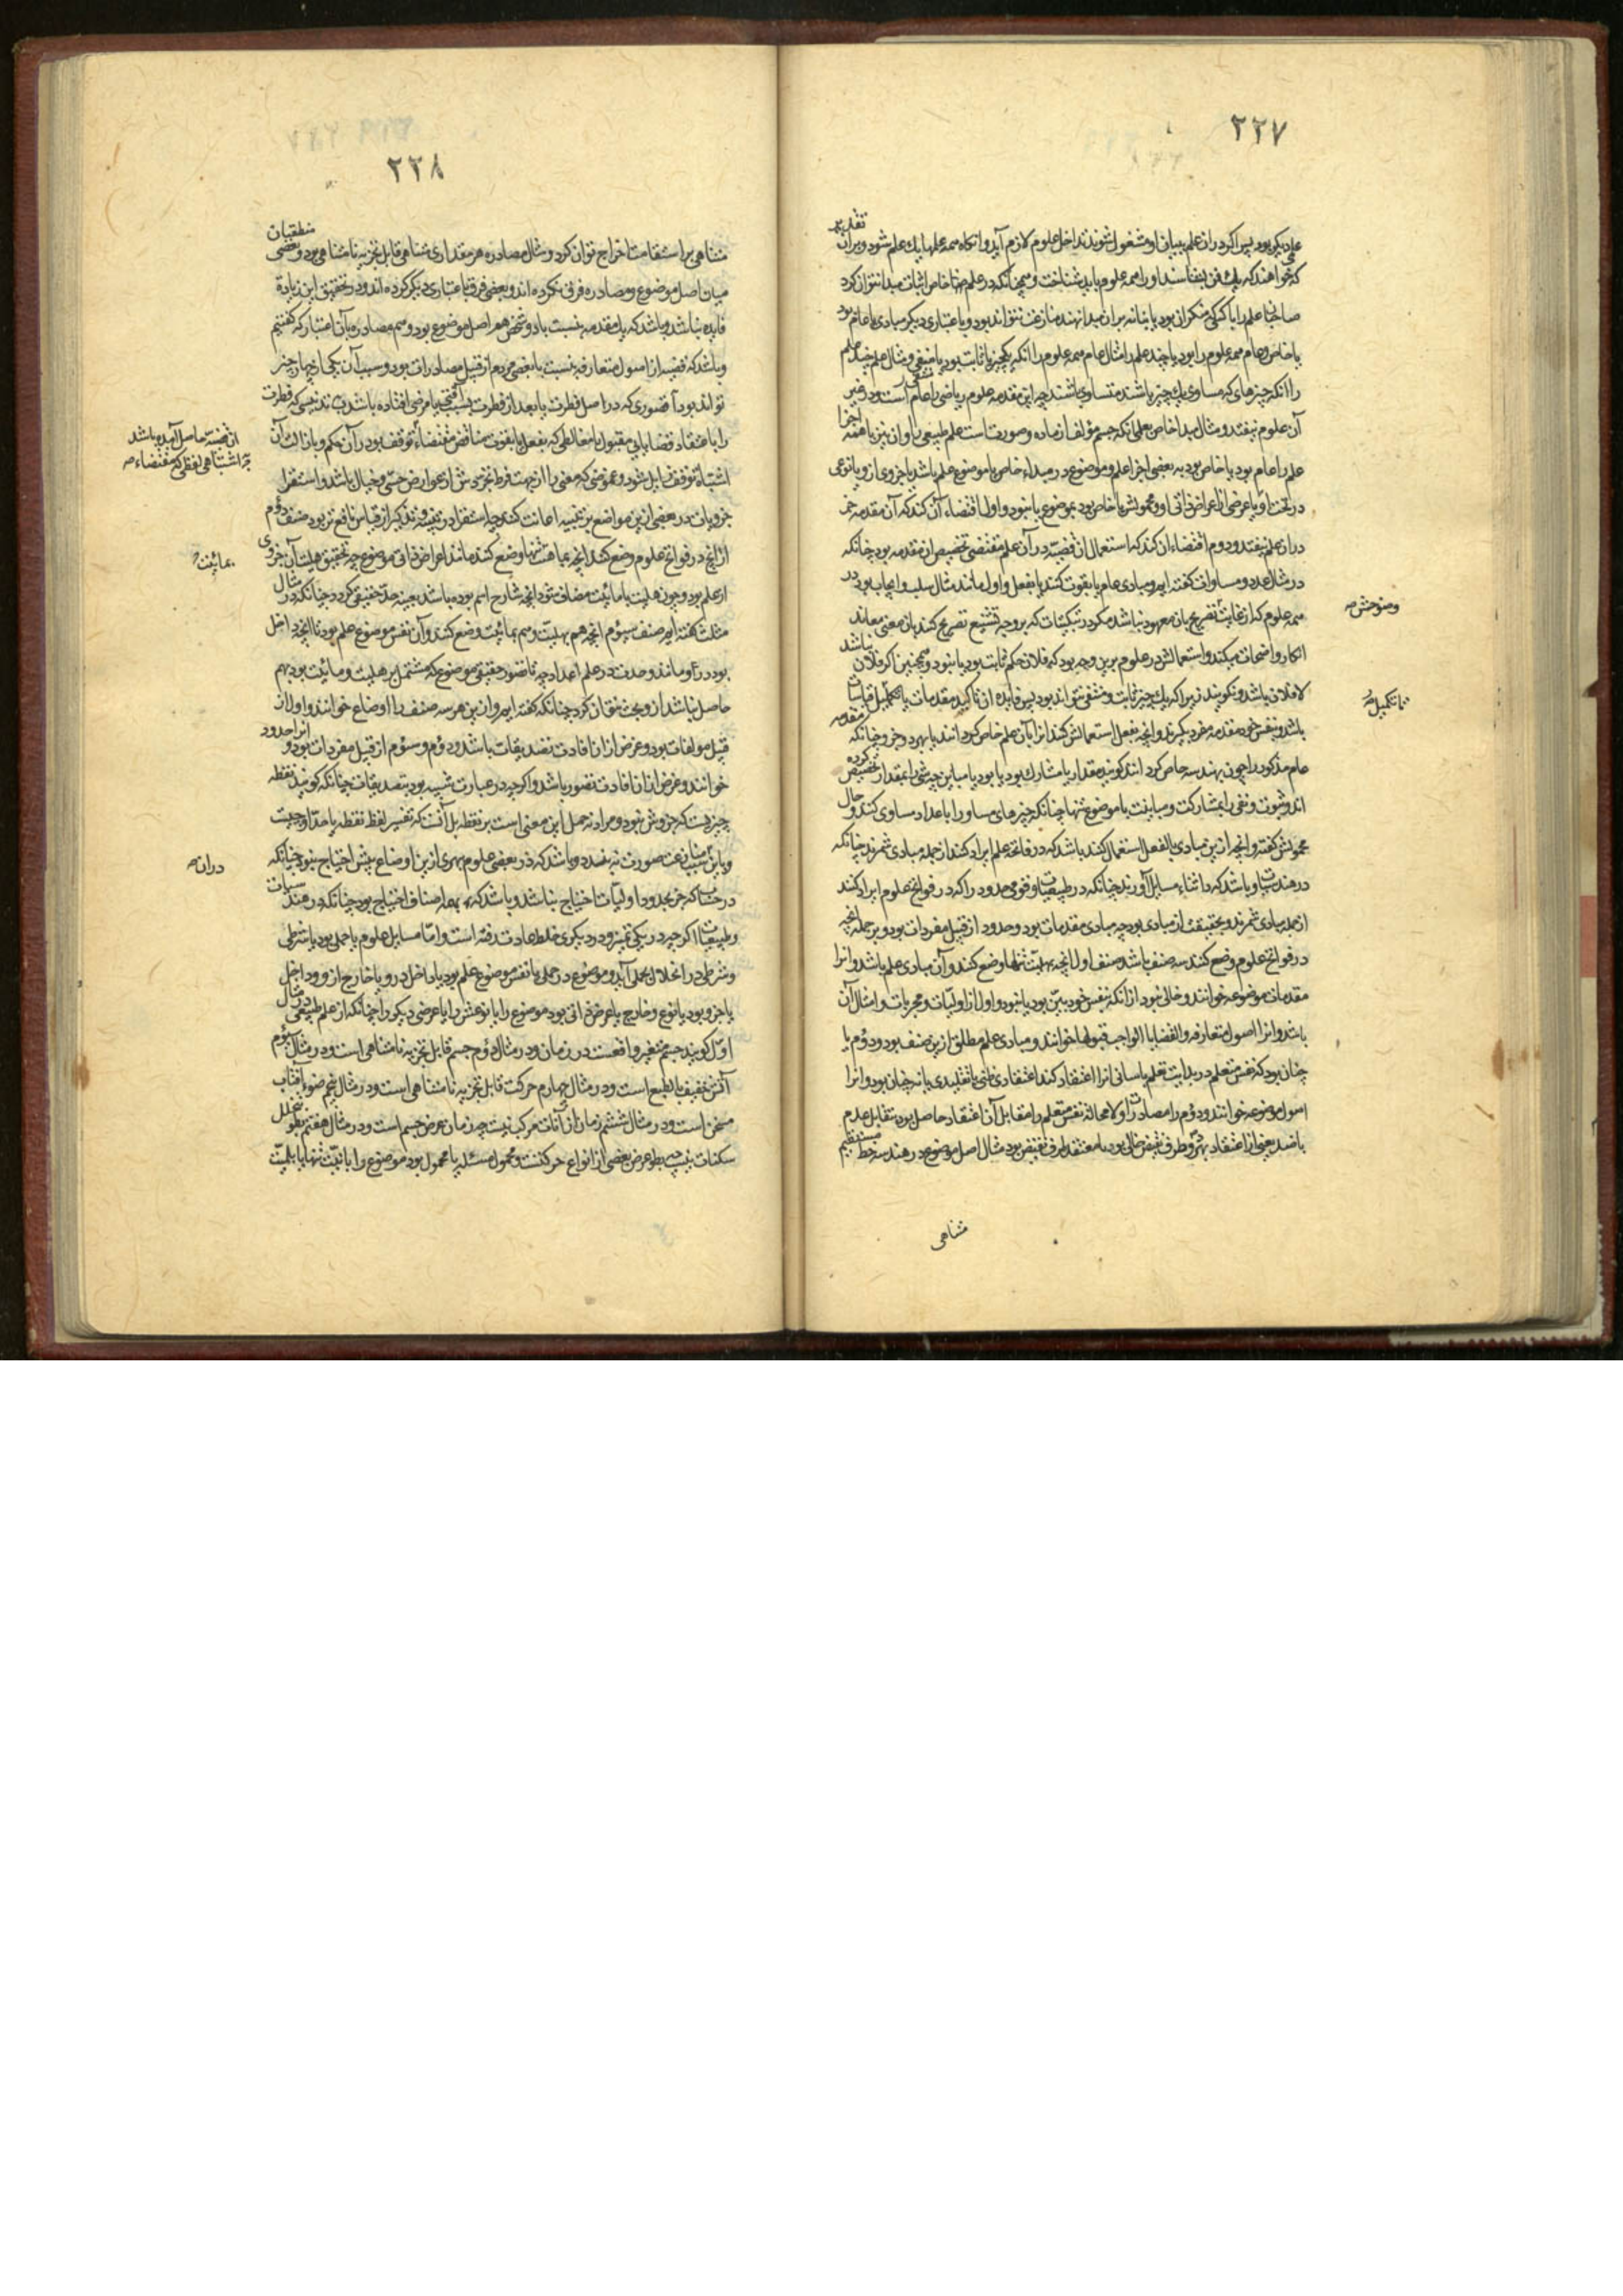 ٢٢٧
علم دیگر بود پس اگر در آن علم ببیان او مشغول شوند تداخل علوم لازم آید و آنگاه همه علمها یک علم شود و بر آن تقدیر
که خواهند که یک فن بشناسند او را همه علوم باید شناخت و همچنانکه در علمی خاص اثبات مبدا نتوان کرد
صاحب آن علم را با کسی که منکر آن بود یا بنا نه بر آن مبدا نهند منازعت نتواند بود و باعتباری دیگر مبادی یا عام بود
یا خاص و عام همه علوم را بود یا چند علم را مثال عام همه علوم را آنکه یک چیز یا ثابت بود یا منفی و مثال علم چند علم
را آنکه چیزهای که مساوی یک چیز باشند متساوی باشند چه این مقدمه علوم ریاضی را عام است و در غیر
آن علوم نیفتد و مثال مبدا خاص بعلمی آنکه جسم مؤلف از ماده و صورتست علم طبیعی را و آن نیز یا همه اجزا
علم را عام بود یا خاص بود به بعضی اجزا علم و موضوع در مبداء خاص یا موضوع علم باشد یا جزوی ازو یا نوعی
در تحت او یا عرضی از اعراض ذاتی او و محمولش یا خاص بود بموضوع یا نبود و اول اقتضاء آن کند که آن مقدمه جز
در آن علم نیفتد و دوم اقتضاء آن کند که استعمال آن قضیه در آن علم مقتضی تخصیص آن مقدمه بود چنانکه
در مثال عدد و مساوات گفته ایم و مبادی عام یا بقوت کنند یا بفعل و اول مانند مثال سلب و ایجاب بود در
همه علوم که از غایت تصریح بآن معهود نباشد مگر در تبکیتات که بر وجه تشنیع تصریح کنند بآن معنی معاند
وضوحش
انکار واضحات میکند و استعمالش در علوم برین وجه بود که فلان حکم ثابت بود یا نبود و همچنین اگر فلان نباشد
لافلان باشد و نگویند زیرا که یک چیز ثابت و منفی نتواند بود پس فایده آن تاکید مقدمات یا تکمیل قیاسات
تا تکمیل
باشد و بنفس خود مقدمه مفرد نگیرند و آنچه بفعل استعمالش کنند آنرا بآن علم خاص کرد انند یا بهر دو جزو چنانکه مقدمه
عام مذکور را چون بهندسه خاص کرد انند گویند مقدار یا مشارک بود یا بود یا مباین چه شی را بمقدار تخصیص کرده
اند و ثبوت و نفی را بمشارکت و مباینت یا موضوع تنها چنانکه چیزهای مساوی را باعداد مساوی کنند و حال
محمولش گفته و آنچه ازین مبادی بالفعل استعمال کنند باشد که در فاتحه علم ایراد کنند از جمله مبادی شمرند چنانکه
در هندسیات و باشد که در اثناء مسایل آورند چنانکه در طبیعیات و قومی حدود را که در فواتح علوم ایراد کنند
از جمله مبادی شمرند و بحقیقت از مبادی بود چه مبادی مقدمات بود و حدود از قبیل مفردات بود و بر جمله آنچه
در فواتح علوم وضع کنند سه صنف باشد صنف اول آنچه بهلیت تنها وضع کنند و آن مبادی علم باشد و آنرا
مقدمات موضوعه خوانند و خالی نبود از آنکه بنفس خود بین بود یا نبود و اول از اولیات و مجربات و امثال آن
باشد و آنرا اصول متعارفه و القضایا الواجب قبولها خوانند و مبادی علم مطلق ازین صنف بود و دوم یا
چنان بود که نفس متعلم در بدایت تعلم باسانی آنرا اعتقاد کند اعتقادی ظنی یا تقلیدی یا نه چنان بود و آنرا
اصول موضوعه خوانند و دوم را مصادرات و لا محاله نفس متعلم را مقابل آن اعتقاد حاصل بود بتقابل عدم
یا ضد یعنی از اعتقاد بهر دو طرف نقیض خالی بود یا معتقد طرف نقیض بود مثال اصل موضوع در هندسه خط مستقیم
متناهی
٢٢٨
متناهی بر استقامت اخراج توان کرد و مثال مصادره هر مقداری متناهی قابل تجزیه نامتناهی بود و بعضی منطقیان
میان اصل موضوع و مصادره فرق نکرده اند و بعضی فرق باعتباری دیگر کرده اند و در تحقیق این زیادة
فایده نباشد و باشد که یک مقدمه بنسبت با دو شخص هم اصل موضوع بود و هم مصادره بآن اعتبار که گفتیم
و باشد که قضیه از اصول متعارفه بنسبت با بعضی مردم از قبیل مصادرات بود و سبب آن یکی از چهار چیز
تواند بود آ قصوری که در اصل فطرت یا بعد از فطرت بسبب آفتی یا مرضی افتاده باشد ب تدنیسی که فطرت
را باعتقاد قضایایی مقبول یا مغالطی که بفعل یا بقوت مناقض مقتضاء توقف بود در آن حکم و بازالت آن
از قضیه حاصل آمده باشد
ج اشتباهی لفظی که مقتضاء
اشتباه توقف زایل شود د غموضی که معنی را از جهت فرط تجردش از عوارض حسی و خیال باشد و استقرا
جزویات در بعضی ازین مواضع بر تنبیه اعانت کند چه استقرا در تنبیه و تذکیر از قیاس نافع تر بود صنف دوم
از آنچه در فواتح علوم وضع کنند آنچه بماهیت تنها وضع کنند مانند اعراض ذاتی موضوع چه تحقیق هلیت آن جزوی
بمائیت
از علم بود و چون هلیت با مائیت مضاف شود آنچه شارح اسم بوده باشد بعینه حد حقیقی گردد چنانکه در مثال
مثلث گفته ایم صنف سیوم آنچه هم بهلیت و هم بمائیت وضع کنند و آن نفس موضوع علم بود تا آنچه داخل
بود در او مانند وحدت در علم اعداد چه تا تصور حقیقی موضوع که مشتمل بر هلیت و مائیت بود بهم
حاصل نباشد ازو بحث نتوان کرد چنانکه گفته ایم و از این هر سه صنف را اوضاع خوانند و اول از
قبیل مولفات بود و غرض از آن افادت تصدیقات باشد و دوم و سیوم از قبیل مفردات بود و آنرا حدود
خوانند و غرض از آن افادت تصور باشد و اگرچه در عبارت شبیه بود بتصدیقات چنانکه گویند نقطه
چیزیست که جزوش نبود و مراد نه حمل این معنی است بر نقطه بل آنست که تفسیر لفظ نقطه یا حد او چیست
و باین سبب منازعت صورت نه بندد و باشد که در بعضی علوم بهری ازین اوضاع بیش احتیاج نبود چنانکه
در آن
در حساب که جز بحدود اولیات احتیاج نباشد و باشد که بهمه اصناف احتیاج بود چنانکه در هندسیات
و طبیعیات اگرچه در یکی تمیز و در دیگری خلط عادت رفته است و اما مسایل علوم یا حملی بود یا شرطی
و شرطی در انحلال بحملی آید و موضوع در حملی یا نفس موضوع علم بود یا داخل درو یا خارج ازو و داخل
یا جزو بود یا نوع و خارج یا عرض ذاتی بود موضوع را یا نوعش را یا عرضی دیگر را چنانکه از علم طبیعی در مثال
اول گویند جسم متغیر واقعست در زمان و در مثال دوم جسم قابل تجزیه نامتناهی است و در مثال سیوم
آتش خفیف بالطبع است و در مثال چهارم حرکت قابل تجزیه نامتناهی است و در مثال پنجم ضوء آفتاب
مسخن است و در مثال ششم زمان از آنات مرکب نیست چه زمان عرض جسم است و در مثال هفتم بطو بتخلل
سکنات نیست چه بطو عرض بعضی از انواع حرکتست و محمول مسئله یا محمول بود موضوع را باثبت تنها یا بلمیت